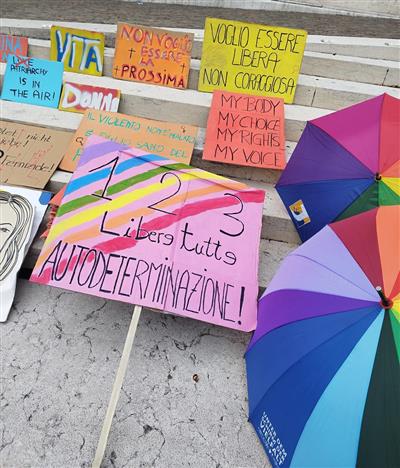 VITA
NON VOGLIO
ESSERE
LA
PROSSIMA
VOGLIO ESSERE
LIBERA
NON CORAGGIOSA
PATRIARCHY
IS IN
THE AIR!
Donne
MY BODY
MY CHOICE
MY RIGHTS
MY VOICE
IL VIOLENTO NON È MALATO
È FIGLIO SANO DEL
nicht
1 2 3
Libere tutte
AUTODETERMINAZIONE!